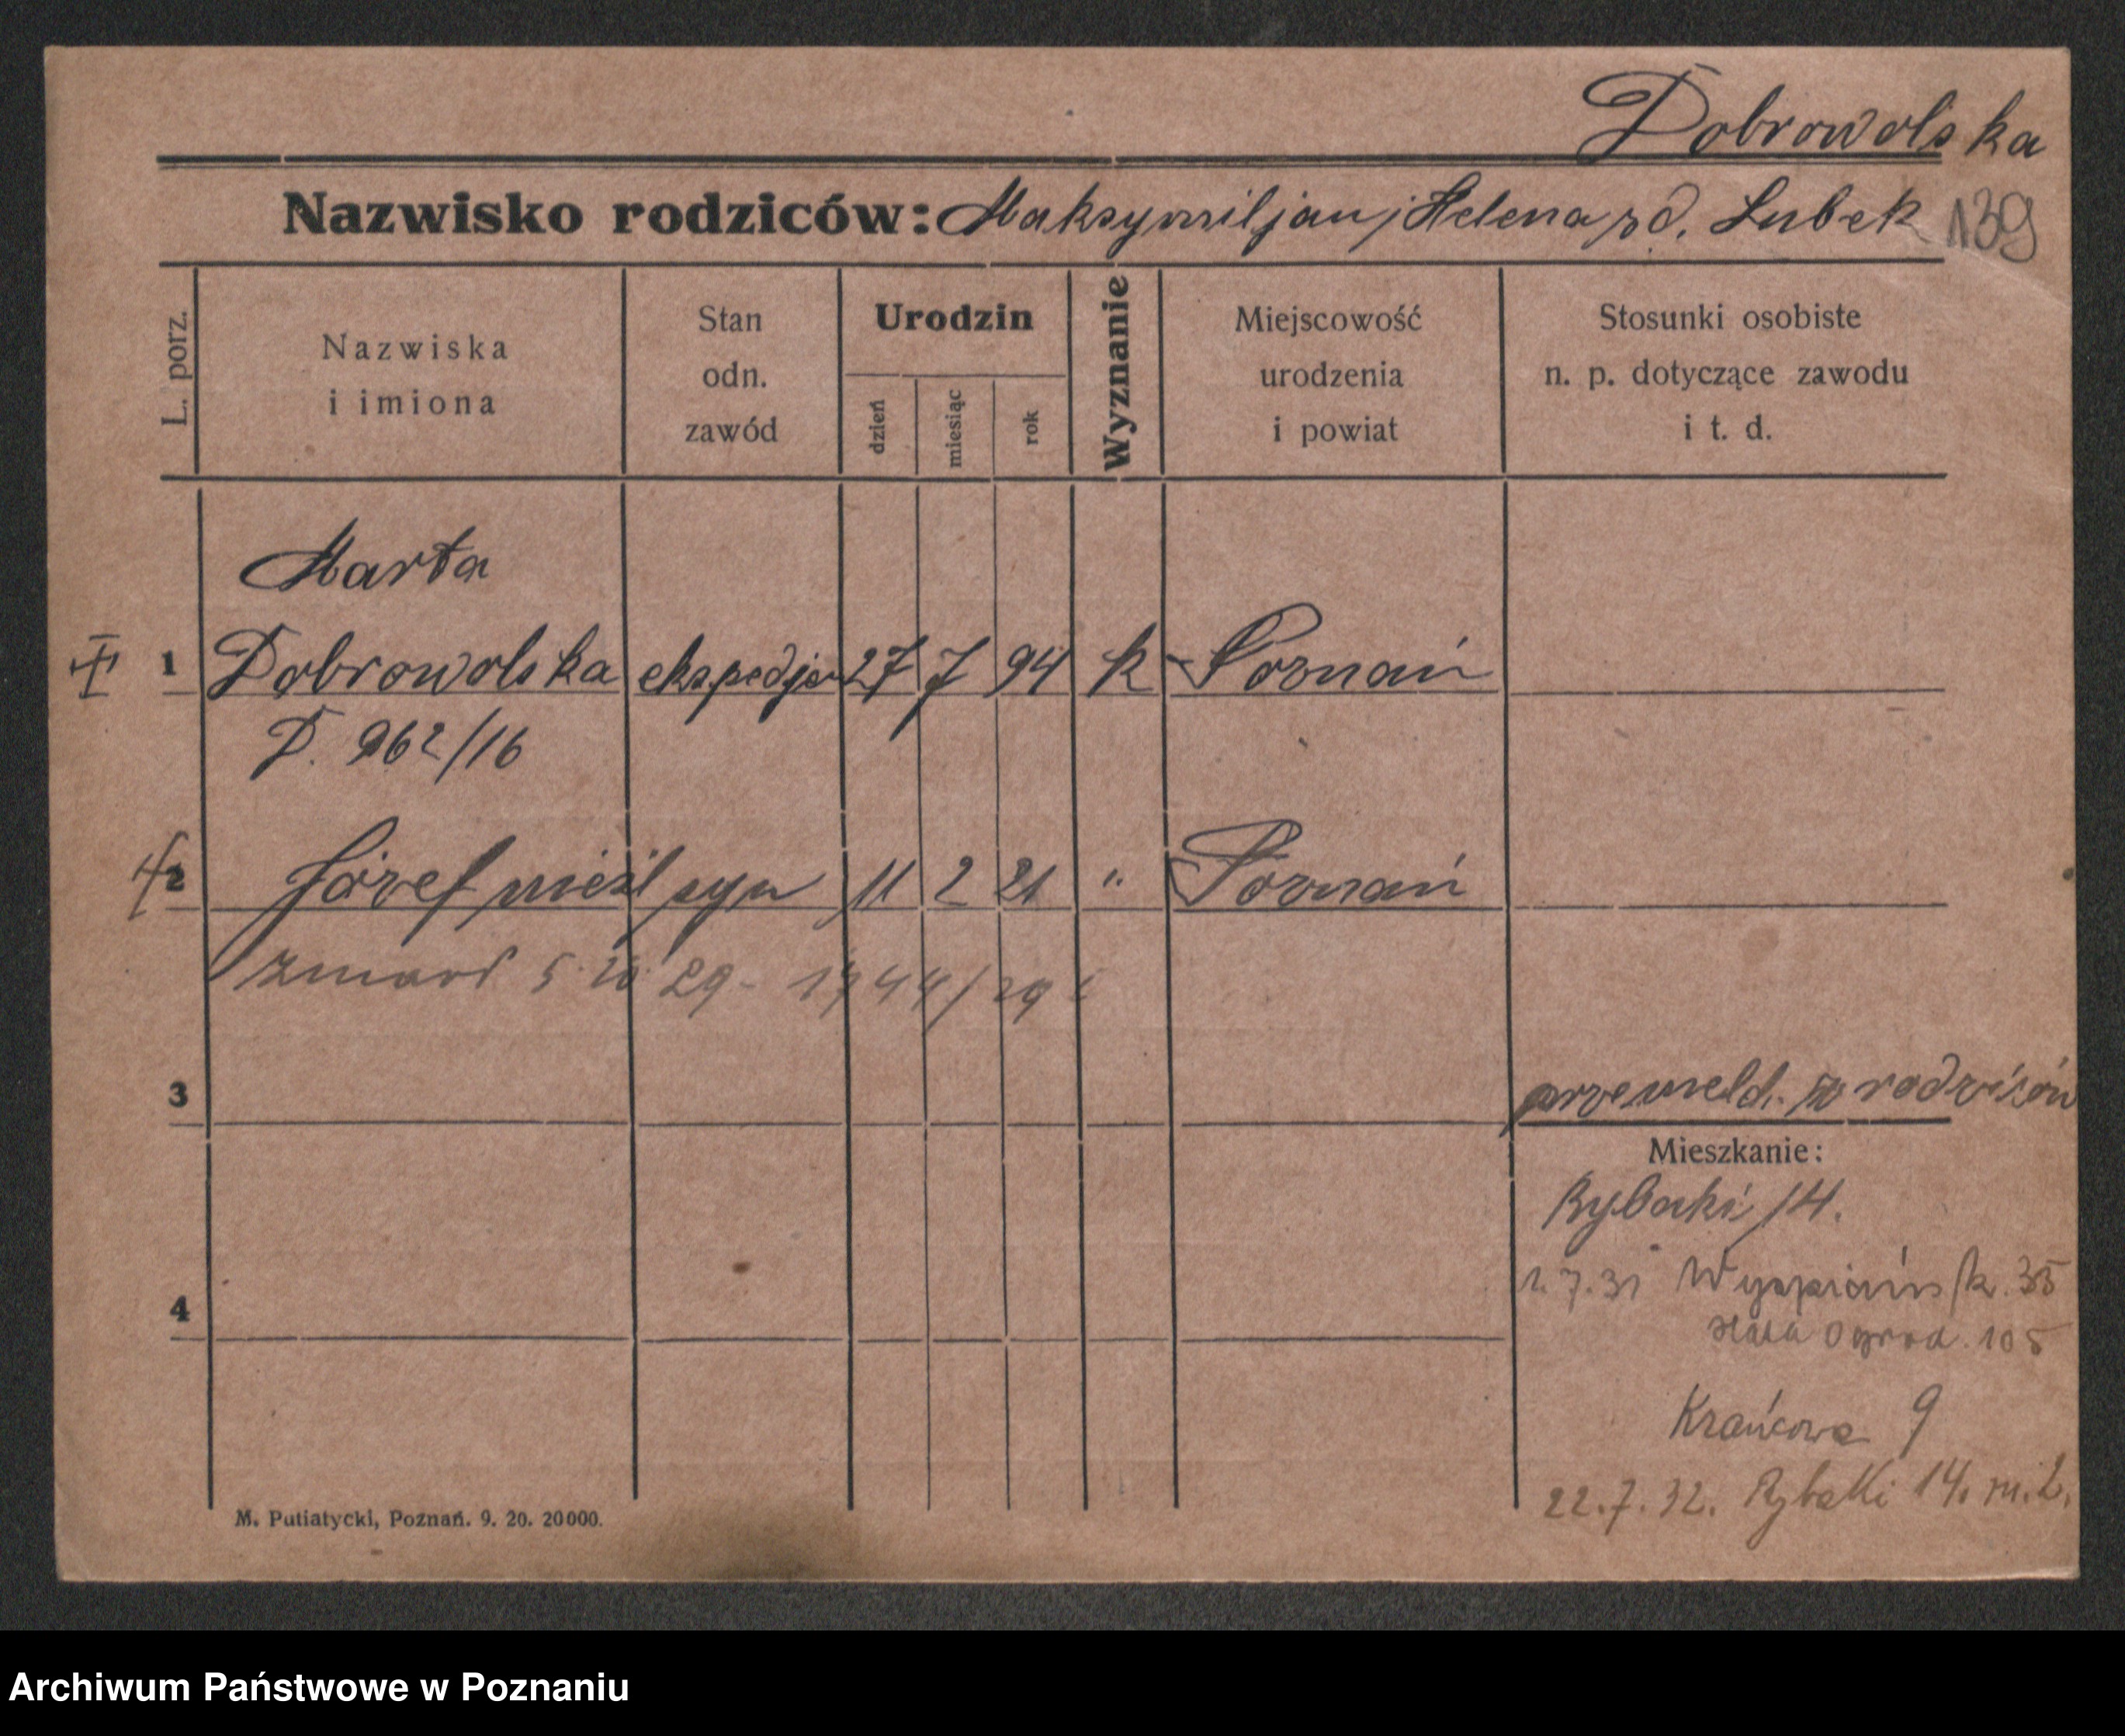 Dobrowolska
Nazwisko rodziców: Maksymiljan, Helena rd. Lubek 139
L. porz.
Nazwiska
i imiona
Stan
odn.
zawód
Urodzin
dzień
miesiąc
rok
Wyznanie
Miejscowość
urodzenia
i powiat
Stosunki osobiste
n. p. dotyczące zawodu
i t. d.
Marta
1 Dobrowolska ekspedjen 27 7 94 k Poznań
D. 962/16
2 Józef nieśl syn 11 2 21 " Poznań
zmarł 5. 10. 29 - 1944/29
3
przemeld. w rodziców
Mieszkanie:
Rybaki 14.
1.7.31 Wyspiańsk. 35
Ogrod. 105
4
Krańcowa 9
22.7.32. Rybaki 14. m. 2.
M. Putiatycki, Poznań. 9. 20. 20000.
Archiwum Państwowe w Poznaniu